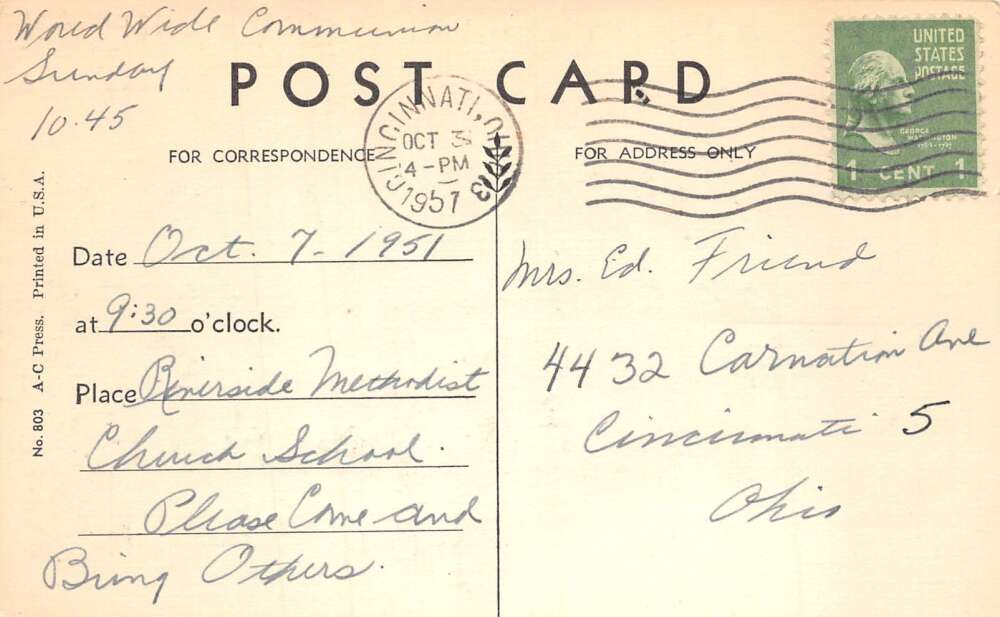 World Wide Communion
Sunday
10.45
POST CARD
FOR CORRESPONDENCE
FOR ADDRESS ONLY
CINCINNATI, OHIO
OCT 3
4-PM
1951
3
UNITED
STATES
POSTAGE
GEORGE
WASHINGTON
1 CENT 1
No. 803 A-C Press. Printed in U.S.A.
Date Oct. 7 - 1951
at 9:30 o'clock.
Place Riverside Methodist
Church School.
Please Come and
Bring Others.
Mrs. Ed. Friend
4432 Carnation Ave
Cincinnati 5
Ohio